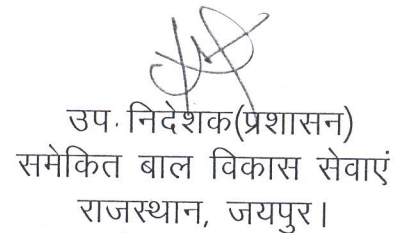 उप. निदेशक(प्रशासन)
समेकित बाल विकास सेवाएं
राजस्थान, जयपुर।